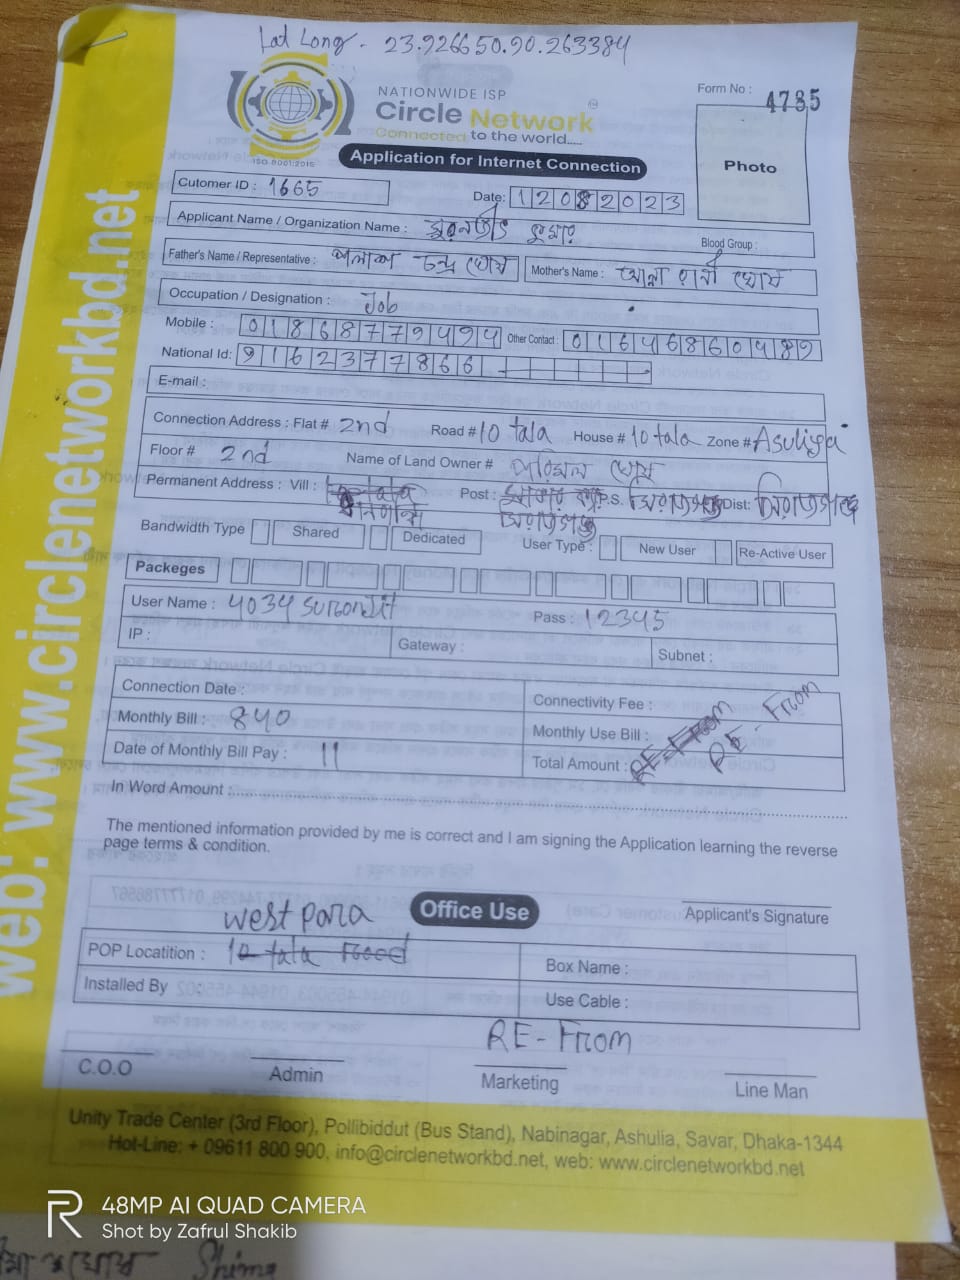 Lat Long - 23.926650.90.263384
NATIONWIDE ISP
Circle Network
Connected to the world.....
ISO 9001:2015
Form No : 4735
Application for Internet Connection
Photo
Cutomer ID : 1665
Date: 12082023
Applicant Name / Organization Name : সুরনজীত কুমার
Blood Group :
Father's Name / Representative : পলাশ চন্দ্র ঘোষ
Mother's Name : আন্না রানী ঘোষ
Occupation / Designation : Job
Mobile : 01868779494 Other Contact : 01646860489
National Id: 9162377866
E-mail :
Connection Address : Flat # 2nd Road # 10 tala House # 10 tala Zone # Asuliya
Floor # 2nd Name of Land Owner # পরিমল ঘোষ
Permanent Address : Vill : Post : P.S. সিরাজগঞ্জ Dist: সিরাজগঞ্জ
সিরাজগঞ্জ
Bandwidth Type Shared Dedicated User Type : New User Re-Active User
Packeges
User Name : 4034 suronjit Pass : 12345
IP : Gateway : Subnet :
Connection Date : Connectivity Fee :
Monthly Bill : 840 Monthly Use Bill :
Date of Monthly Bill Pay : 11 Total Amount : RE-From RE-From
In Word Amount :
The mentioned information provided by me is correct and I am signing the Application learning the reverse
page terms & condition.
Applicant's Signature
Office Use
west para
POP Locatition : 10 tala Rood
Box Name :
Installed By :
Use Cable :
RE-From
C.O.O Admin Marketing Line Man
Unity Trade Center (3rd Floor), Pollibiddut (Bus Stand), Nabinagar, Ashulia, Savar, Dhaka-1344
Hot-Line: + 09611 800 900, info@circlenetworkbd.net, web: www.circlenetworkbd.net
web: www.circlenetworkbd.net
48MP AI QUAD CAMERA
Shot by Zafrul Shakib
Shima